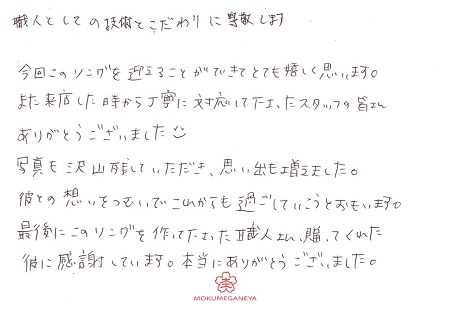 職人としての技術とこだわりに尊敬します
今回このリングを迎えることができてとても嬉しく思います。
また来店した時から丁寧に対応して下さったスタッフの皆さん
ありがとうございました
写真も沢山残していただき、思い出も増えました。
彼との想いをつむいでこれからも過ごしていこうとおもいます。
最後にこのリングを作って下さった職人さん、贈ってくれた
彼に感謝しています。本当にありがとうございました。
MOKUMEGANEYA